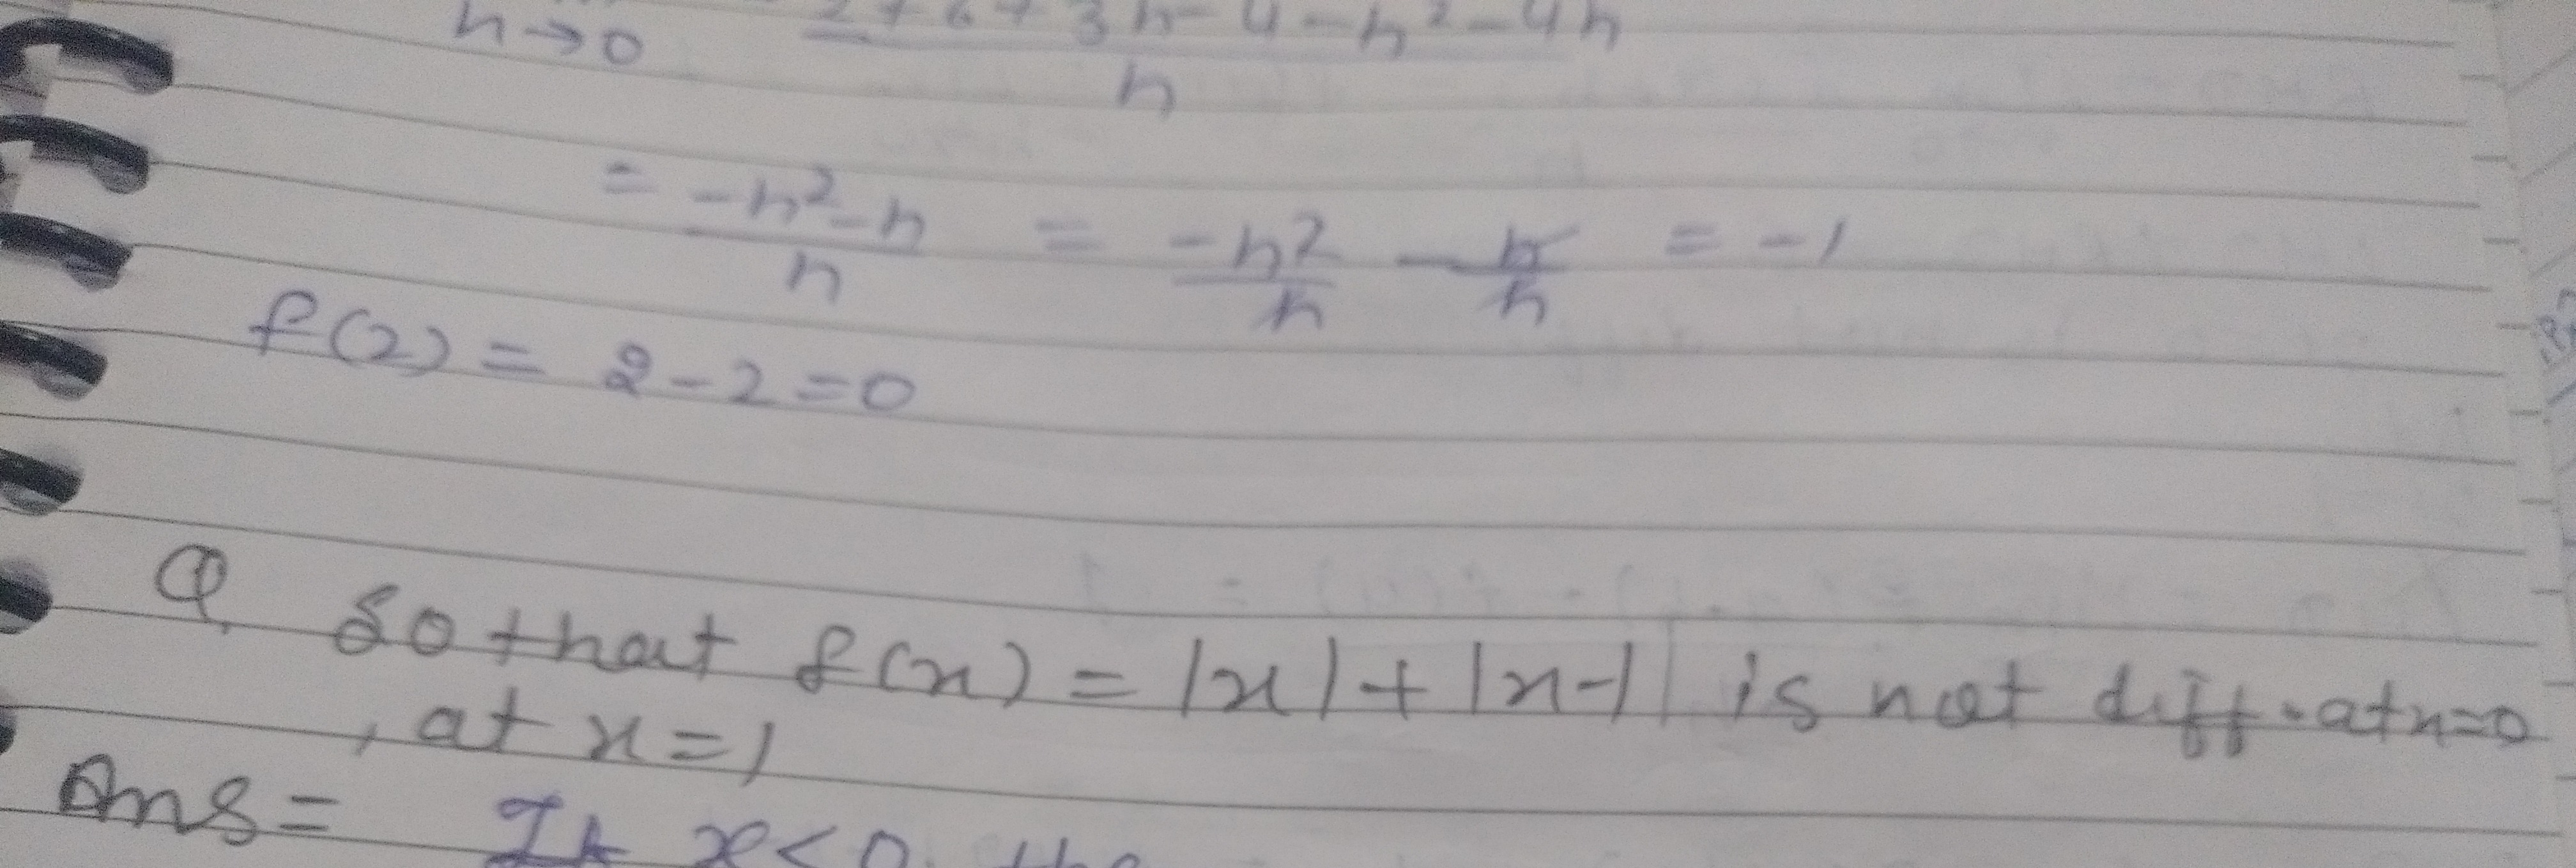 h→0 2+6+3h-4-h²-4h
h
= -h²-h/h = -h²/h - h/h = -1
f(2) = 2-2=0
Q. So that f(x) = |x|+|x-1| is not diff. at x=0
, at x=1
Ans = If x<0, the